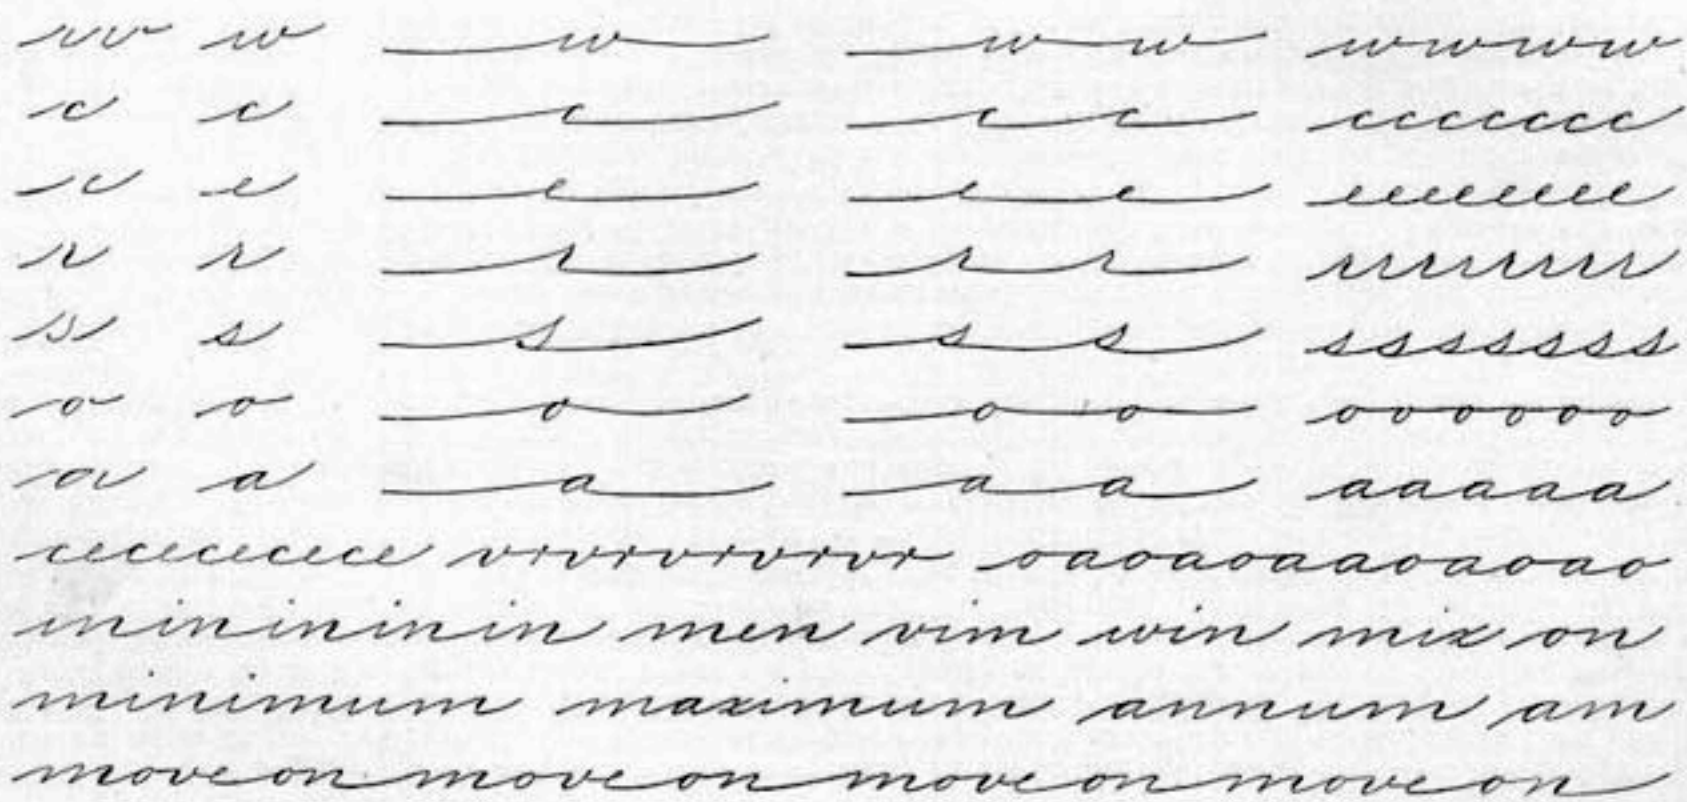 w w w w w wwww
c c c c c ccccccc
e e e e e eeeeeeee
r r r r r rrrrrrr
s s s s s sssssss
o o o o o oooooo
a a a a a aaaaa
cececececece vrvrvrvrvrvr oaoaoaaoaoao
ininininin men vim win mix on
minimum maximum annum am
move on move on move on move on